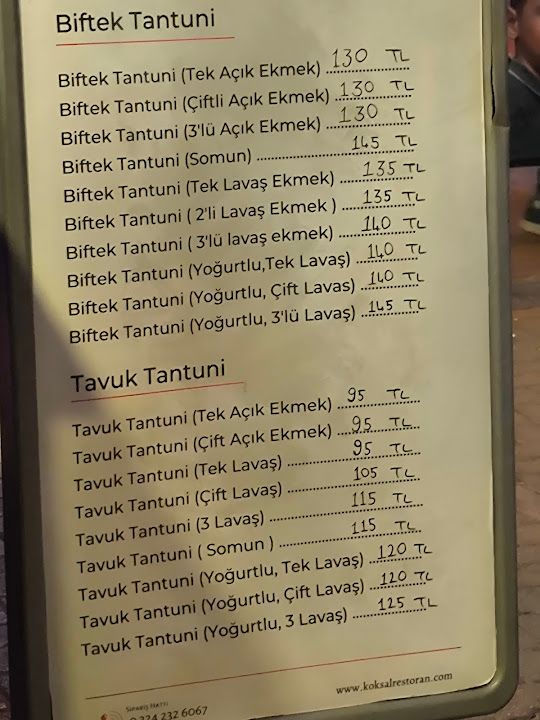 Biftek Tantuni
Biftek Tantuni (Tek Açık Ekmek) ................ 130 TL
Biftek Tantuni (Çiftli Açık Ekmek) ................ 130 TL
Biftek Tantuni (3'lü Açık Ekmek) ................ 130 TL
Biftek Tantuni (Somun) ................ 145 TL
Biftek Tantuni (Tek Lavaş Ekmek) ................ 135 TL
Biftek Tantuni ( 2'li Lavaş Ekmek ) ................ 135 TL
Biftek Tantuni ( 3'lü lavaş ekmek) ................ 140 TL
Biftek Tantuni (Yoğurtlu,Tek Lavaş) ................ 140 TL
Biftek Tantuni (Yoğurtlu, Çift Lavas) ................ 140 TL
Biftek Tantuni (Yoğurtlu, 3'lü Lavaş) ................ 145 TL
Tavuk Tantuni
Tavuk Tantuni (Tek Açık Ekmek) ................ 95 TL
Tavuk Tantuni (Çift Açık Ekmek) ................ 95 TL
Tavuk Tantuni (Tek Lavaş) ................ 95 TL
Tavuk Tantuni (Çift Lavaş) ................ 105 TL
Tavuk Tantuni (3 Lavaş) ................ 115 TL
Tavuk Tantuni ( Somun ) ................ 115 TL
Tavuk Tantuni (Yoğurtlu, Tek Lavaş) ................ 120 TL
Tavuk Tantuni (Yoğurtlu, Çift Lavaş) ................ 120 TL
Tavuk Tantuni (Yoğurtlu, 3 Lavaş) ................ 125 TL
SİPARİŞ HATTI
0 324 232 6067
www.koksalrestoran.com